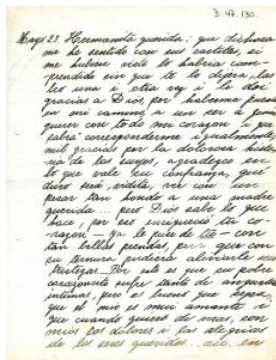 D. 47. 130.
Mayo 23. Hermanita querida: que dichosa
me he sentido con sus cartitas, si
me hubiera visto lo habria com-
prendido sin que te lo dijera, las
leo una i otra vez i le doi
gracias a Dios, por haberme puesto
en mi camino a un ser a
querer con todo mi corazon i que
sabrá corresponderme igualmente
mil gracias por la dolorosa histo-
ria de los suyos, agradezco en
lo que vale su confianza, qué
duro será, vidita, ver con un
pesar tan hondo a una madre
querida.... pero Dios sabe lo que
hace, por eso enriqueció tu co-
razon - ya le puse de tu - con
tan bellas prendas, para que con
su ternura pudiera aliviarle sus
tristezas. Por esto es que su pobre
corazoncito sufre tanto de
íntimas, pero es bueno que sepa
que el mio es mui amante i
que cuando quiere de veras, son
mios los dolores i las alegrias
de los seres queridos... asi, en